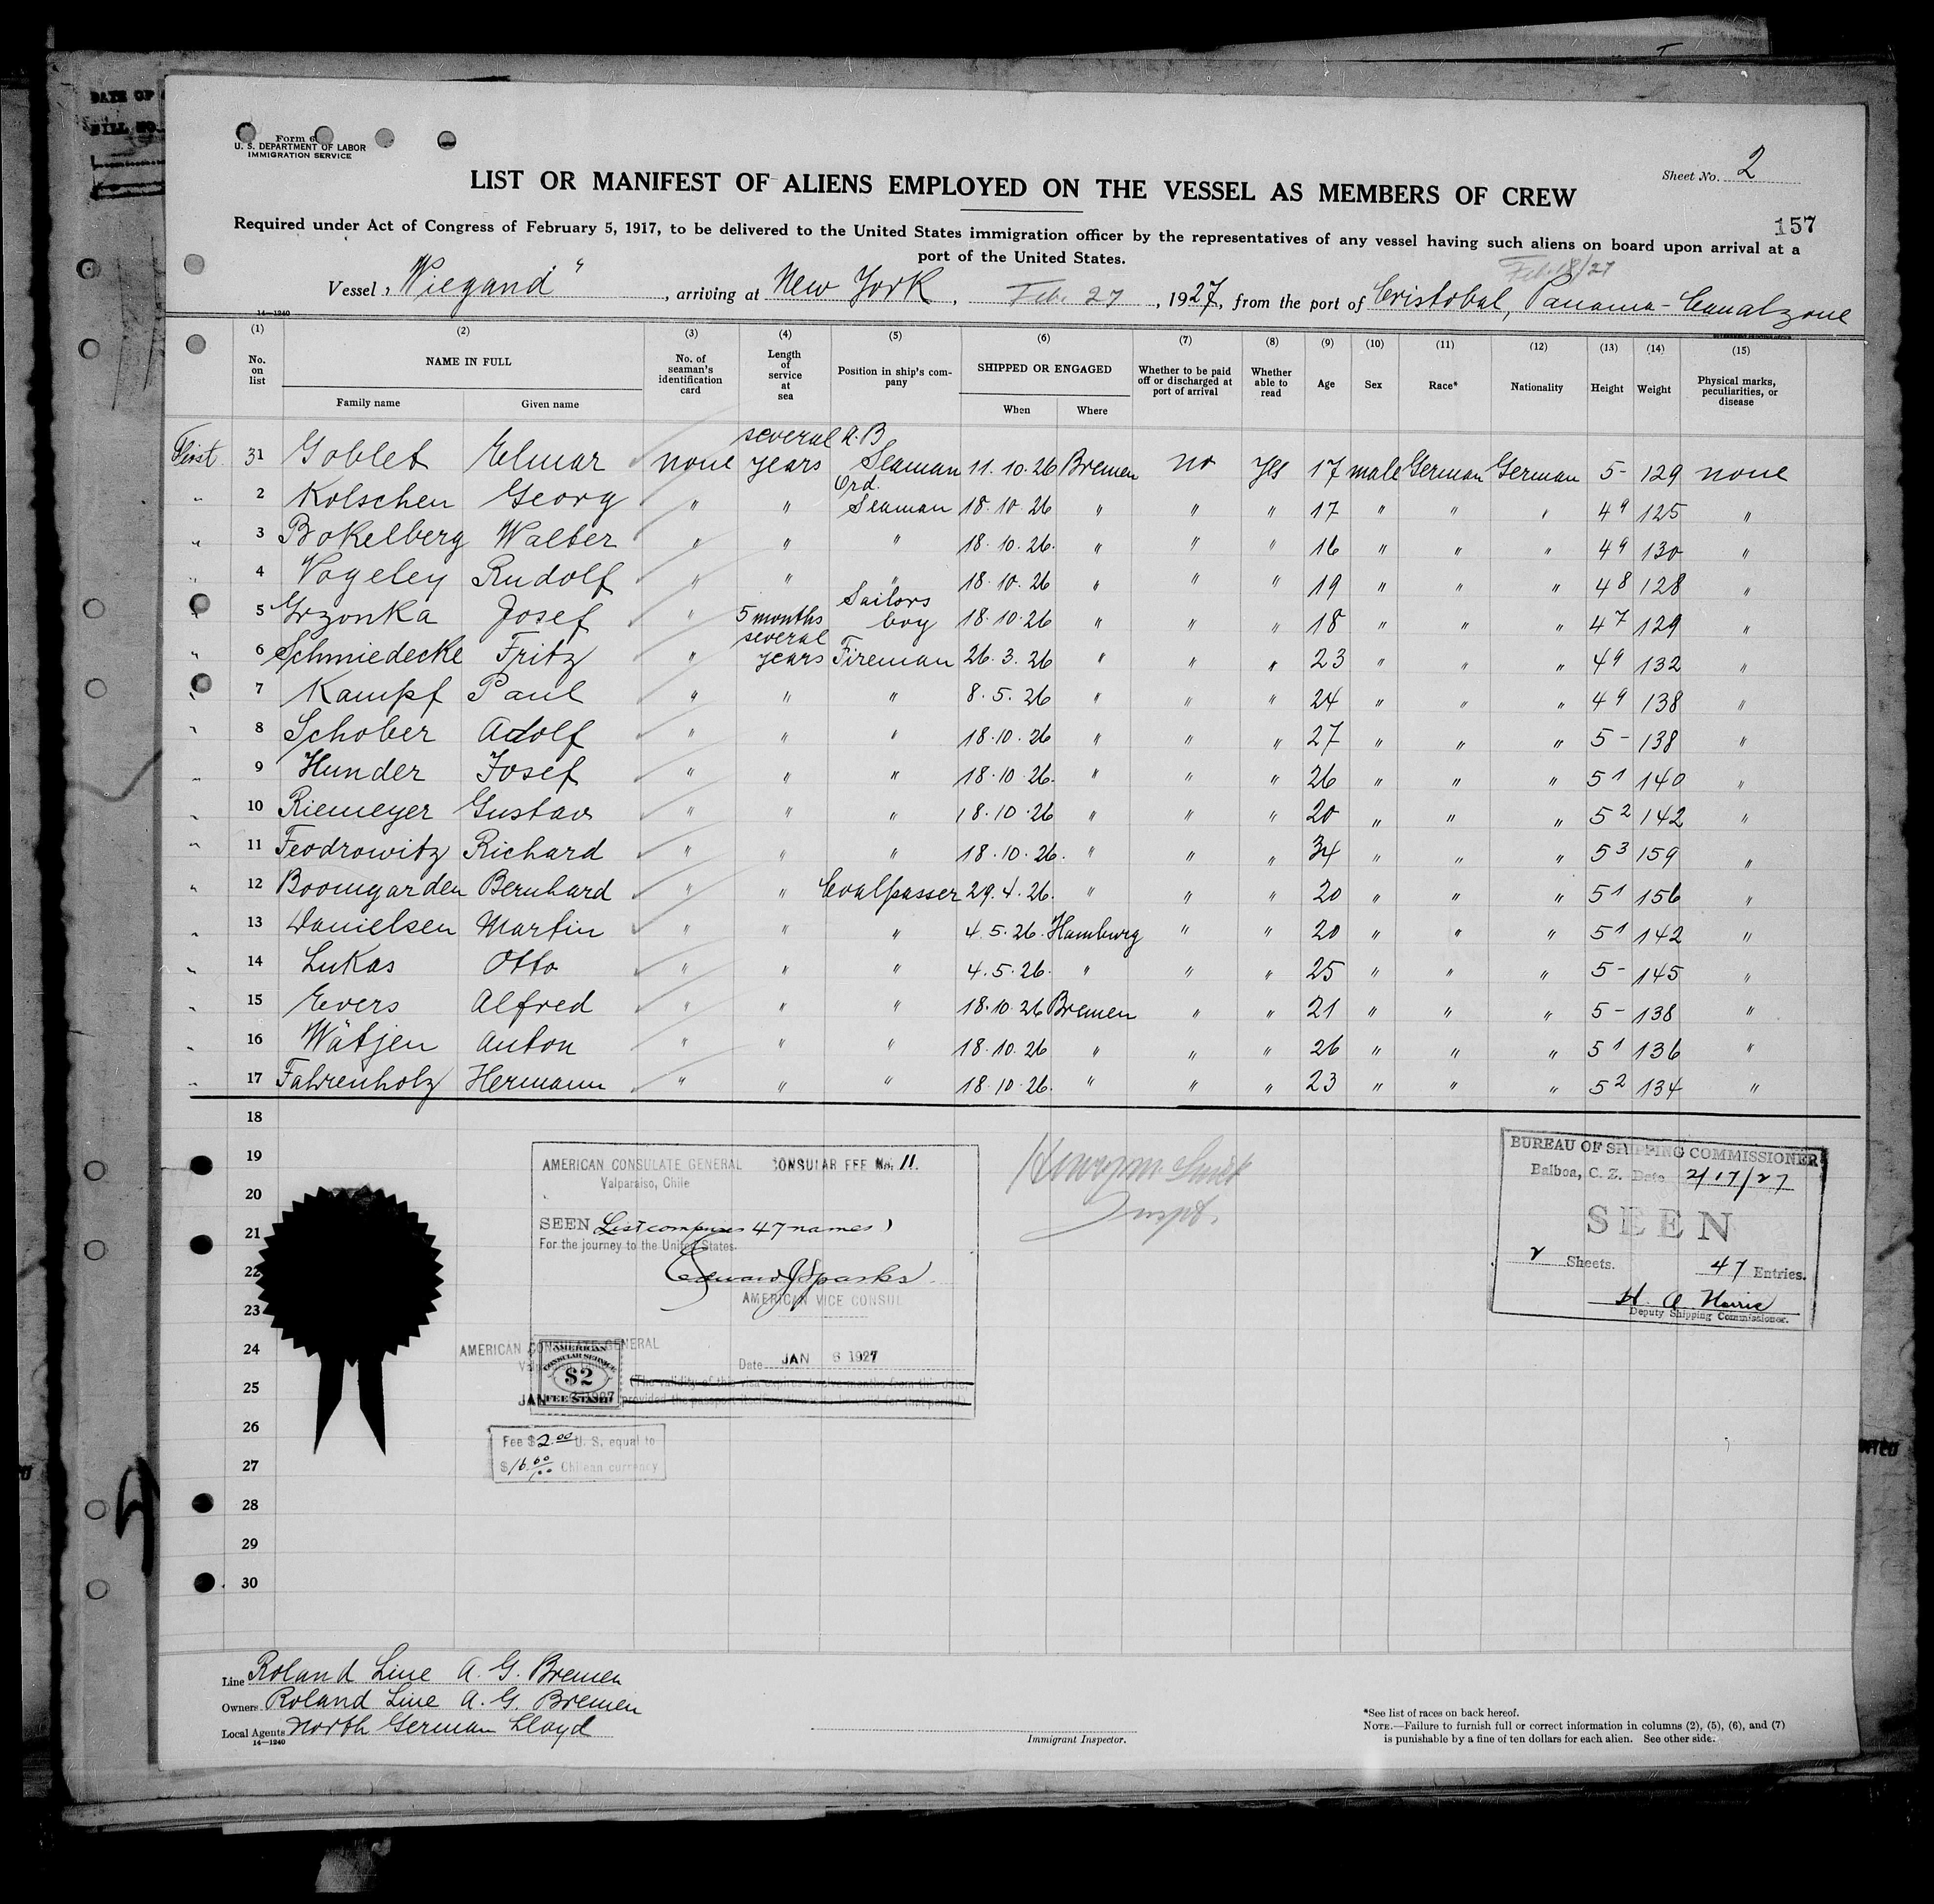 DATE OF
BILL NO.
Form 6
U. S. DEPARTMENT OF LABOR
IMMIGRATION SERVICE
Sheet No. 2
LIST OR MANIFEST OF ALIENS EMPLOYED ON THE VESSEL AS MEMBERS OF CREW
157
Required under Act of Congress of February 5, 1917, to be delivered to the United States immigration officer by the representatives of any vessel having such aliens on board upon arrival at a
port of the United States.
Feb. 18/27
Vessel „Wiegand“, arriving at New York, Feb. 27, 1927, from the port of Cristobal, Panama-Canalzone
14—1240
(1) (2) (3) (4) (5) (6) (7) (8) (9) (10) (11) (12) (13) (14) (15)
No. on list NAME IN FULL No. of seaman's identification card Length of service at sea Position in ship's company SHIPPED OR ENGAGED Whether to be paid off or discharged at port of arrival Whether able to read Age Sex Race* Nationality Height Weight Physical marks, peculiarities, or disease
Family name Given name When Where
First 31 Goblet Elmar none several years A.B Seaman 11.10.26 Bremen no yes 17 male German German 5- 129 none
" 2 Kolschen Georg " " Ord. Seaman 18.10.26 " " " 17 " " " 4 9 125 "
" 3 Bokelberg Walter " " " 18.10.26. " " " 16 " " " 4 9 130 "
" 4 Vogeley Rudolf " " " 18.10.26 " " " 19 " " " 4 8 128 "
" 5 Grzonka Josef " 5 months Sailors boy 18.10.26 " " " 18 " " " 4 7 129 "
" 6 Schmiedecke Fritz " several years Fireman 26.3.26 " " " 23 " " " 4 9 132 "
" 7 Kampf Paul " " " 8.5.26 " " " 24 " " " 4 9 138 "
" 8 Schober Adolf " " " 18.10.26 " " " 27 " " " 5- 138 "
" 9 Hunder Josef " " " 18.10.26. " " " 26 " " " 5 1 140 "
" 10 Riemeyer Gustav " " " 18.10.26 " " " 20 " " " 5 2 142 "
" 11 Feodrowitz Richard " " " 18.10.26. " " " 34 " " " 5 3 159 "
" 12 Boomgarden Bernhard " " Coalpasser 29.4.26. " " " 20 " " " 5 1 156 "
" 13 Danielsen Martin " " " 4.5.26. Hamburg " " 20 " " " 5 1 142 "
" 14 Lukas Otto " " " 4.5.26. " " " 25 " " " 5- 145 "
" 15 Evers Alfred " " " 18.10.26 Bremen " " 21 " " " 5- 138 "
" 16 Wätjen Anton " " " 18.10.26 " " " 26 " " " 5 1 136 "
" 17 Fahrenholz Hermann " " " 18.10.26. " " " 23 " " " 5 2 134 "
18
19
20
21
22
23
24
25
26
27
28
29
30
AMERICAN CONSULATE GENERAL CONSULAR FEE No. 11.
Valparaiso, Chile
SEEN List comprises 47 names)
For the journey to the United States.
Edward J Sparks
AMERICAN VICE CONSUL
AMERICAN CONSULATE GENERAL
Date JAN 6 1927
AMERICAN CONSULAR SERVICE
$2
FEE STAMP
JAN 6 1927
(The validity of this visa expires twelve months from this date,
provided the passport itself continues to be valid for that period)
Fee $ 2.00 U. S. equal to
$ 16.60 Chilean currency
Inspt.
BUREAU OF SHIPPING COMMISSIONER
Balboa, C. Z. Date 2/17/27
SEEN
2 Sheets. 47 Entries.
Deputy Shipping Commissioner.
Line Roland Line A. G. Bremen
Owners Roland Line A. G. Bremen
Local Agents North German Lloyd
14—1240
Immigrant Inspector.
*See list of races on back hereof.
NOTE.—Failure to furnish full or correct information in columns (2), (5), (6), and (7)
is punishable by a fine of ten dollars for each alien. See other side.